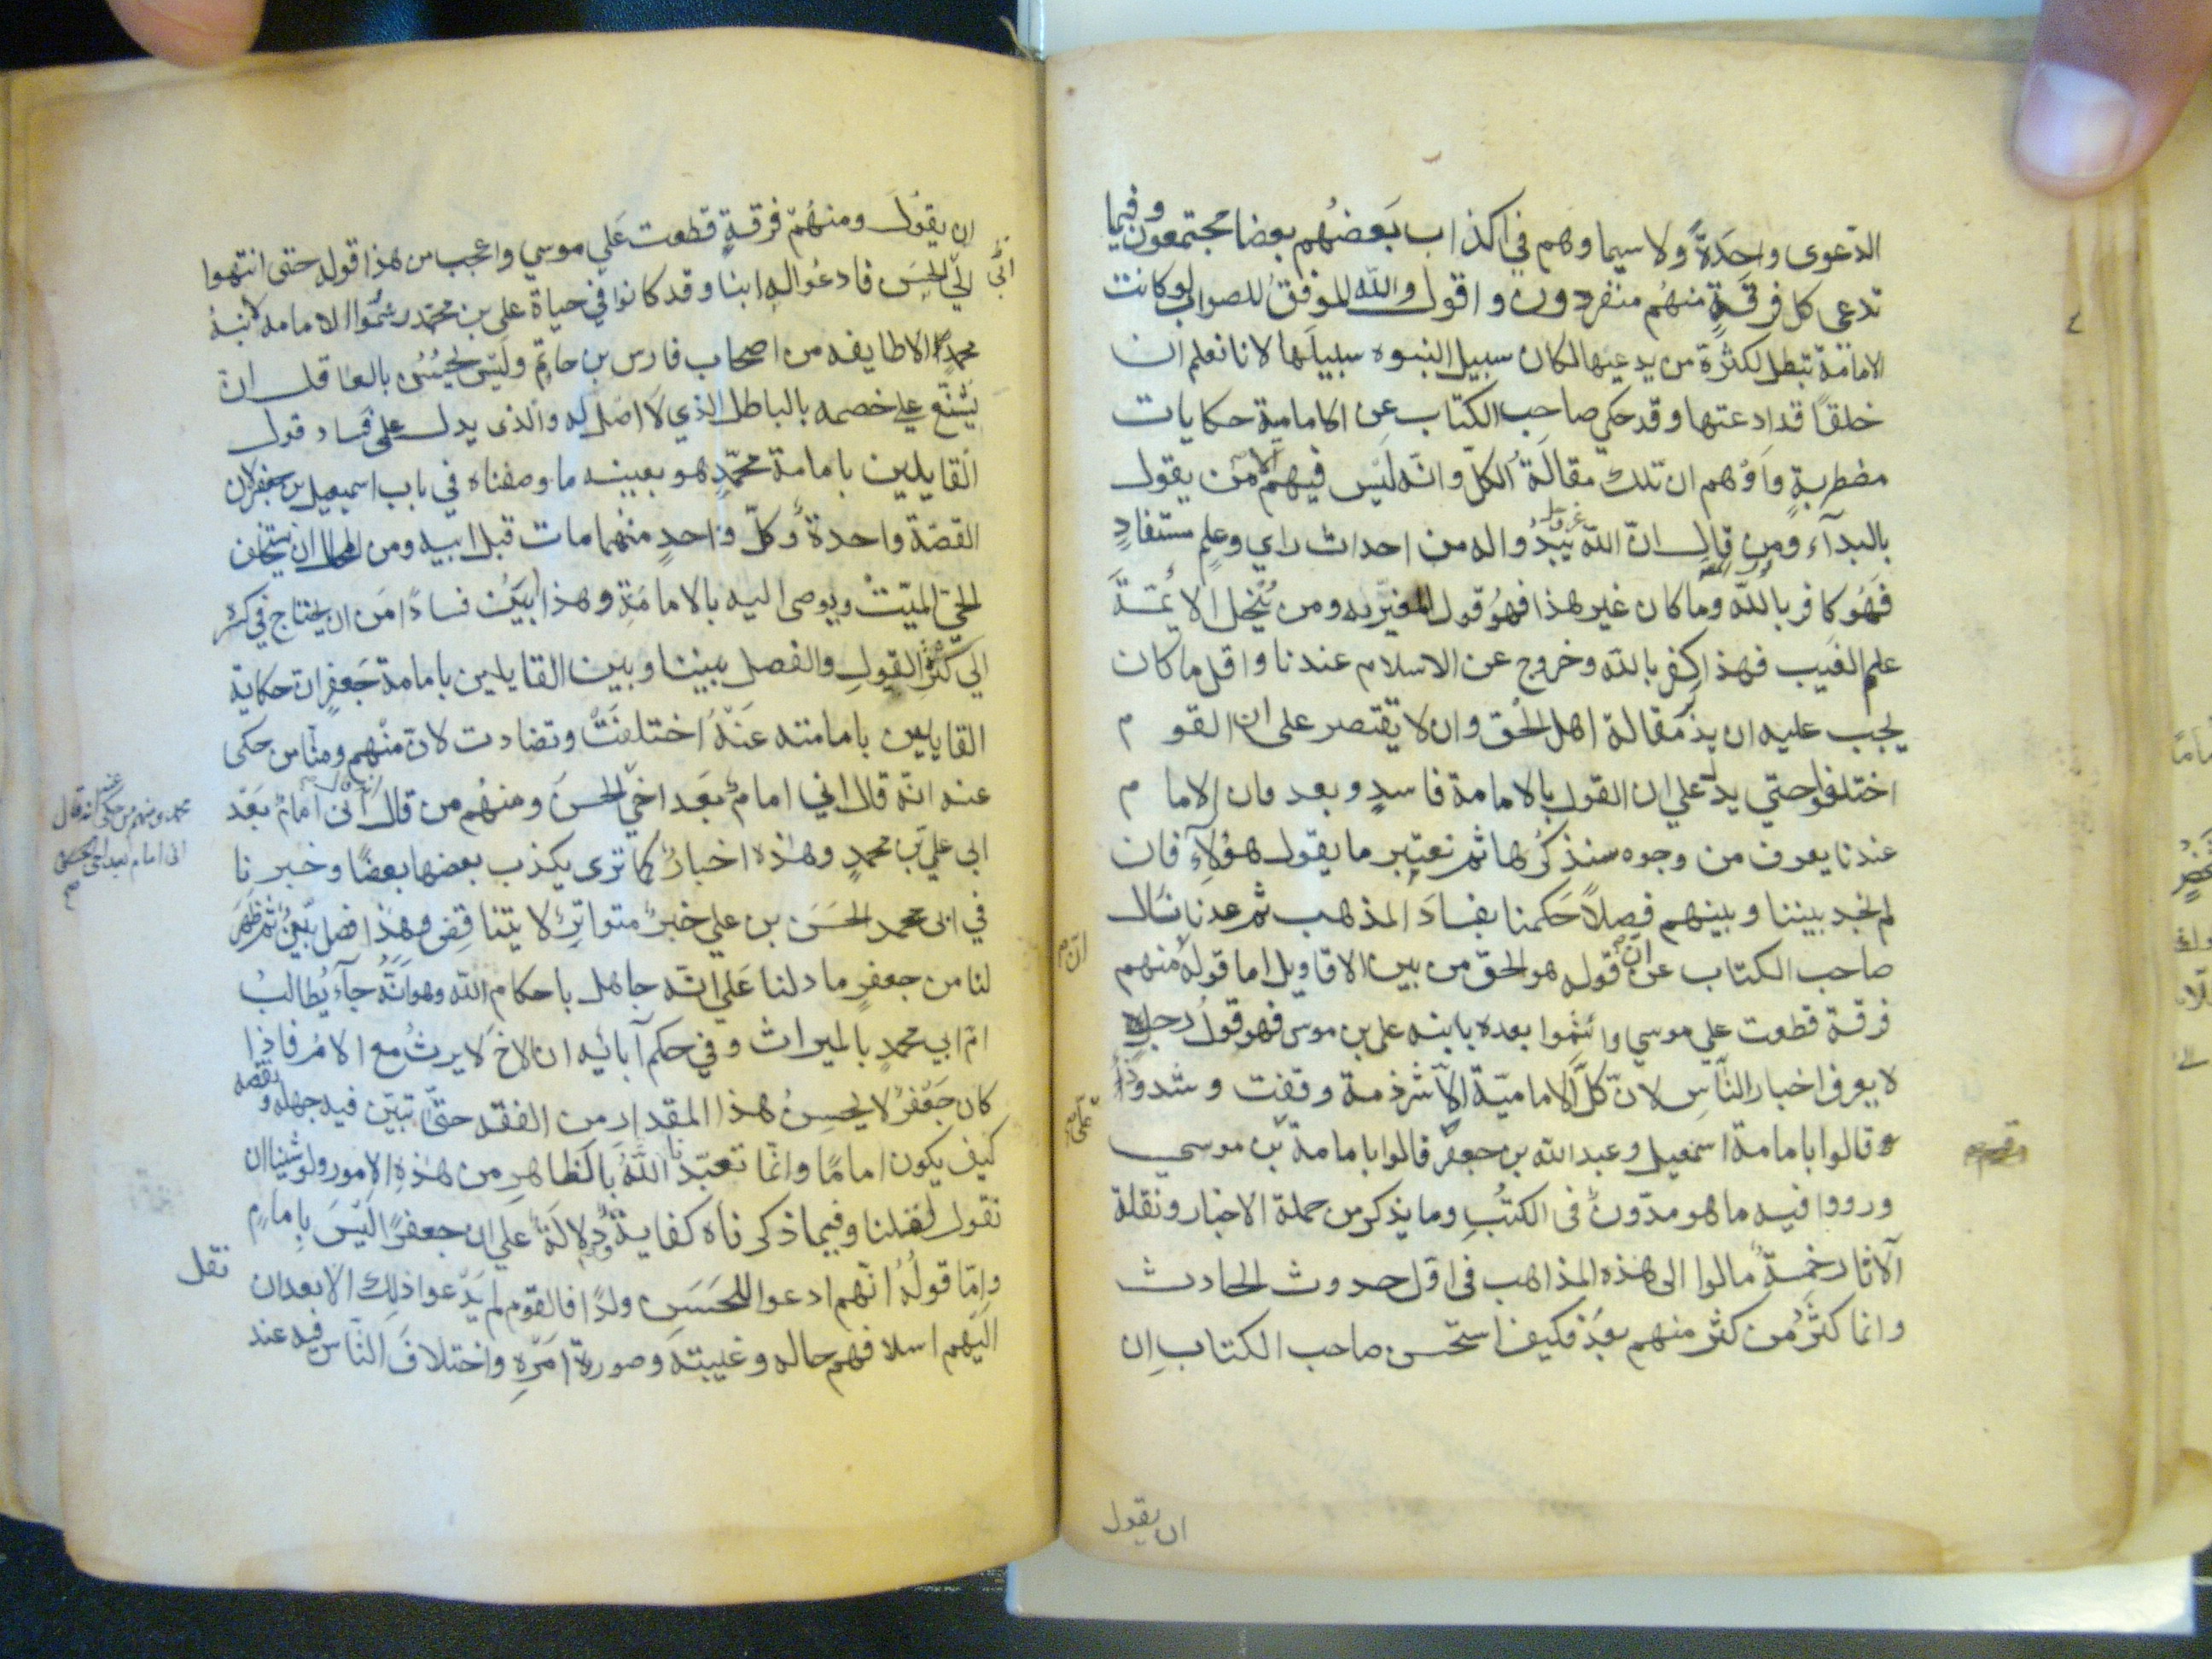 الدّعوى واحدةً ولا سيما وهم في اكذاب بعضهم بعضا مجتمعون وفيما
تدعي كل فرقةٍ منهم منفردون واقول والله الموفق للصواب لو كانت
الامامة تبطل لكثرة من يدعيها لكان سبيل النبوه سبيلها لانا نعلم ان
خلقاً قد ادعتها وقد حكي صاحب الكتاب عن الامامية حكايات
مضطربةٍ واوهم ان تلك مقالة الكلّ وانّه ليس فيهم الا من يقول
بالبدآء ومن قال انّ الله يبدُو اله من احداث راي وعلمٍ مستفادٍ
فهو كافر بالله وما كان غير هذا فهو قول المغيريه ومن ينحل الايمّة
علم الغيب فهذا كفر بالله وخروج عن الاسلام عندنا واقل ما كان
يجب عليه ان يذكر مقالة اهل الحق وان لا يقتصر على ان القوم
اختلفوا حتي يدل علي ان القول بالامامة فاسدٍ وبعد فان الامام
عندنا يعرف من وجوه سنذكرها ثم نعتبر ما يقول هؤلآء فان
لم نجد بيننا وبينهم فصلاً حكمنا بفساد المذهب ثم عدنا نسال
صاحب الكتاب عن انّ قوله هو الحق من بين الاقاويل اما قوله منهم
انّ م
فرقة قطعت علي موسي وائتموا بعده بابنه علي بن موسى فهو قول رجلٍ
لا يعرف اخبار الناس لانّ كلّ الاماميّة الاّ شرذمة وقفت وشدوذاً
وقالوا بامامة اسمعيل وعبد الله بن جعفر قالوا بامامة بن موسي
ورووا فيه ما هو مدّون في الكتب وما يذكر من حملة الاخبار ونقلة
الآثار خمسة مالوا الى هذه المذاهب في اوّل حدوث الحادث
وانما كثر من كثر منهم بعد فكيف استحسن صاحب الكتاب ان
ان يقول
ان يقول ومنهم فرقةٍ قطعت علي موسي واعجب من هذا قوله حتى انتهوا
الي الحسن فادعوا له ابنا وقد كانوا في حياة علي بن محمّد رسّموا الامامه لابنه
محمدٍ الا طايفه من اصحاب فارس بن حاتمٍ وليس يحسن بالعاقل ان
يشنّع علي خصمه بالباطل الذي لا اصل له والذي يدل على فساد قول
القايلين بامامة محمّدٍ هو بعينه ما وصفناه في باب اسمعيل بن جعفر لان
القصّة واحدة وكلّ واحدٍ منهما مات قبل ابيه ومن المحال ان يستخلف
الحيّ الميّت ويوصى اليه بالامامة وهذا ابين فساداً من ان يحتاج في كسره
الي كثرة القول والفصل بيننا وبين القايلين بامامة جعفرٍ ان حكاية
القايلين بامامته عنه اختلفت وتضادت لان منهم ومنّا من حكى
عنه انّه قال اني امام بعد اخي الحسن ومنهم من قال اني امام بعد
محمد ومنهم من حكى عنه انه قال
انى امام بعد اخى الحسن
ابي علي بن محمدٍ وهذه اخبارٌ كما ترى يكذب بعضها بعضًا وخبرنا
في ابي محمد الحسن بن علي خبرٌ متواترٌ لا يتناقض وهذا فصل بيّن ثم ظهر
لنا من جعفرٍ ما دلنا علي انّه جاهل باحكام الله وهو انّه جآء يطالب
امّ ابي محمدٍ بالميراث وفي حكم آبائه ان الاخ لا يرث مع الام فاذا
كان جعفر لا يحسن هذا المقدار من الفقه حتّى تبيّن فيه جهله ونقصه
كيف يكون امامًا وانّما تعبّدنا الله بالظاهر من هذه الامور ولو شئنا ان
نقول لقلنا وفيما ذكرناه كفاية ودلالة علي ان جعفرًا ليس بامامٍ
وامّا قوله انّهم ادعوا للحسن ولدًا فالقوم لم يدّعوا ذلك الا بعد ان
نقل
اليهم اسلافهم حاله وغيبته وصورة امره واختلاف النّاس فيه عند